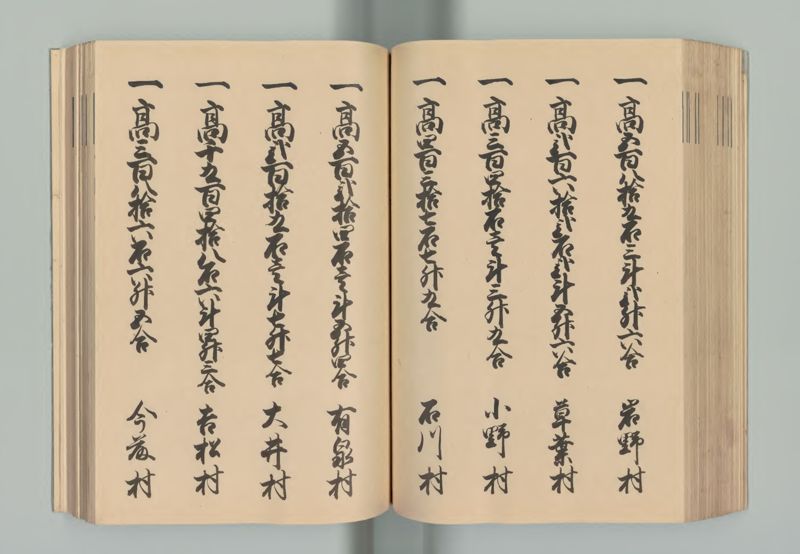 一高五百八拾九石三斗弐升六合 岩野村
一高弐百六拾弐石弐斗五升六合 草葉村
一高三百四拾石壱斗三升九合 小野村
一高四百三拾七石七升九合 石川村
一高五百弐拾四石壱斗五升四合 有泉村
一高弐百拾九石壱斗七升七合 大井村
一高千九百四拾八石六斗四升三合 吉松村
一高三百八拾六石六升五合 今藤村